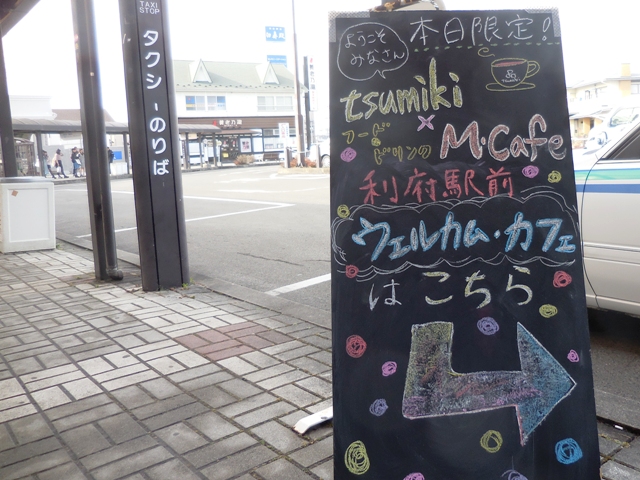 TAXI
STOP
タクシーのりば
ようこそ
みなさん
本日限定!
tsumiki
×
フード
ドリンク
M・Cafe
利府駅前
ウェルカム・カフェ
は こちら